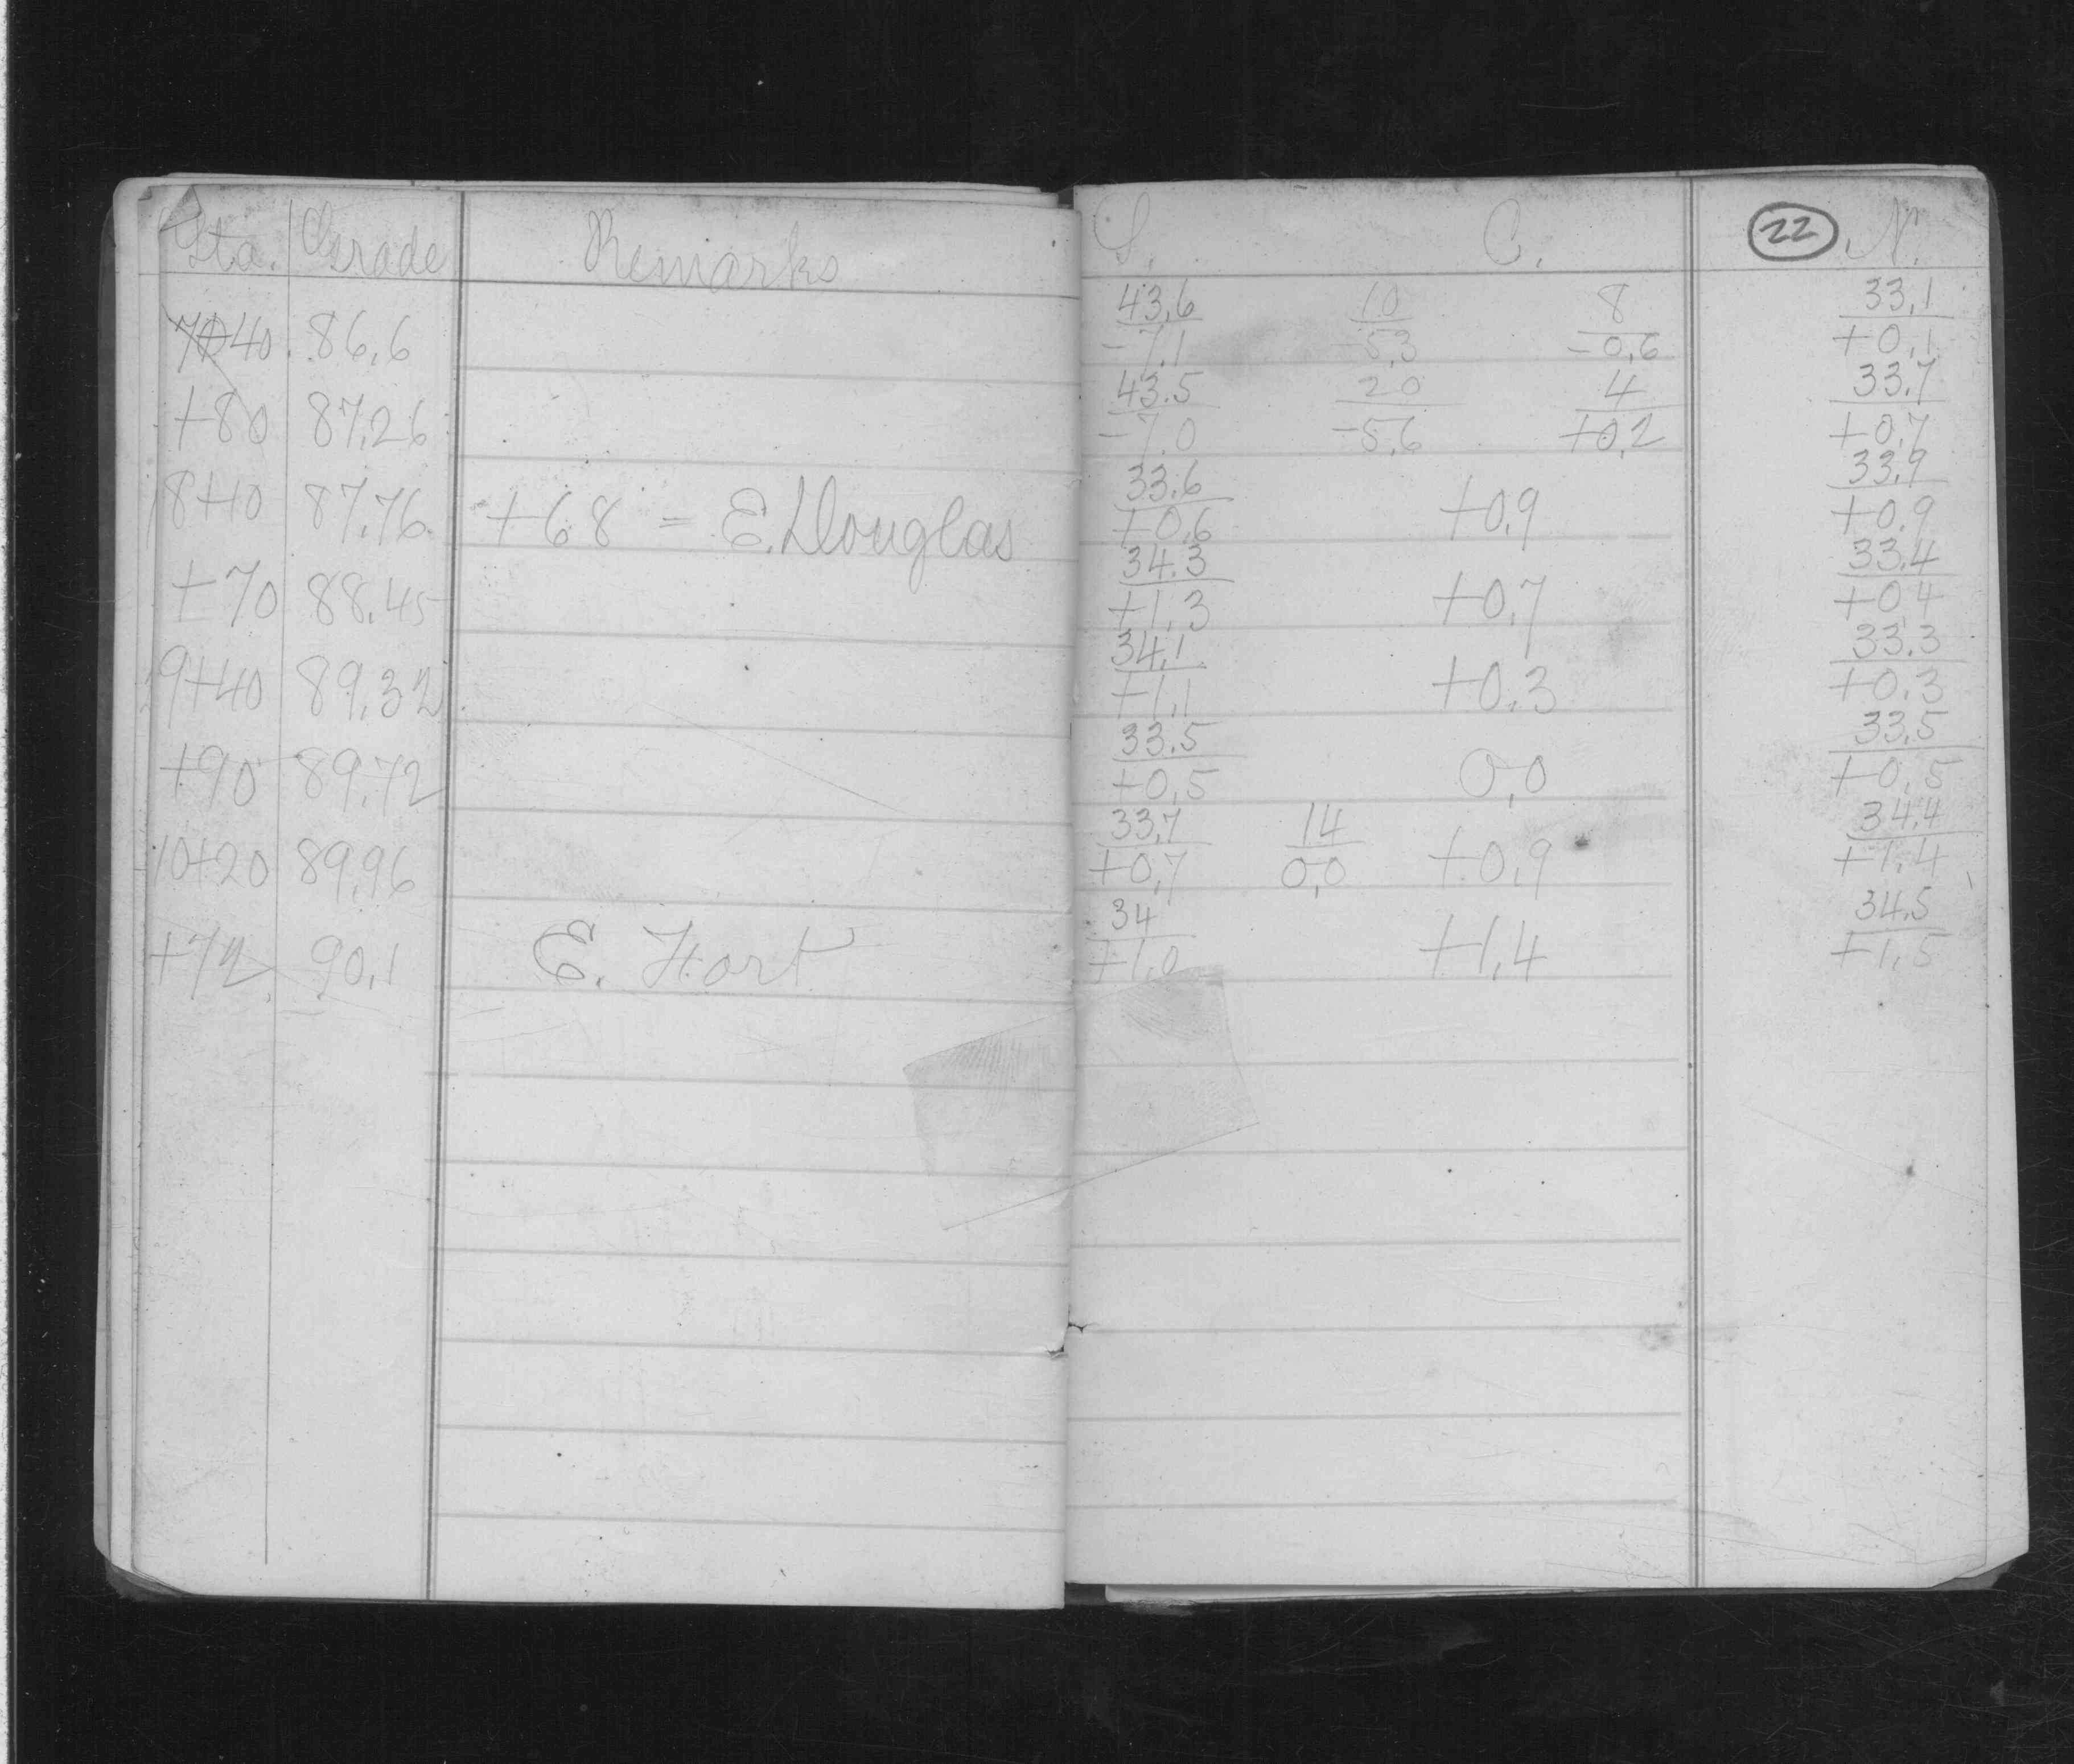 Sta. Grade Remarks S. C. 22 N.
43.6 10 8 33.1
7+40 86.6 -7.1 -5.3 -0.6 +0.1
43.5 20 4 33.7
+80 87.26 -7.0 -5.6 +0.2 +0.7
33.6 33.9
8+10 87.76 +68 = E. Douglas +0.6 +0.9 +0.9
34.3 33.4
+70 88.45 +1.3 +0.7 +0.4
34.1 33.3
9+40 89.32 +1.1 +0.3 +0.3
33.5 33.5
+90 89.72 +0.5 0.0 +0.5
33.7 14 34.4
10+20 89.96 +0.7 0.0 +0.9 +1.4
34 34.5
+72 90.1 E. Fort +1.0 +1.4 +1.5